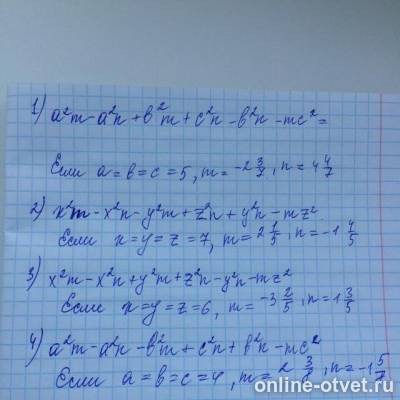 1) a²m - a²n + b²m + c²n - b²n - mc² =
Если a = b = c = 5, m = -2 3/7, n = 4 4/7
2) x²m - x²n - y²m + z²n + y²n - mz²
Если x = y = z = 7, m = 2 1/5, n = -1 4/5
3) x²m - x²n + y²m + z²n - y²n - mz²
Если x = y = z = 6, m = -3 2/5, n = 1 3/5
4) a²m - a²n - b²m + c²n + b²n - mc²
Если a = b = c = 4, m = 2 3/7, n = -1 5/7
online-otvet.ru